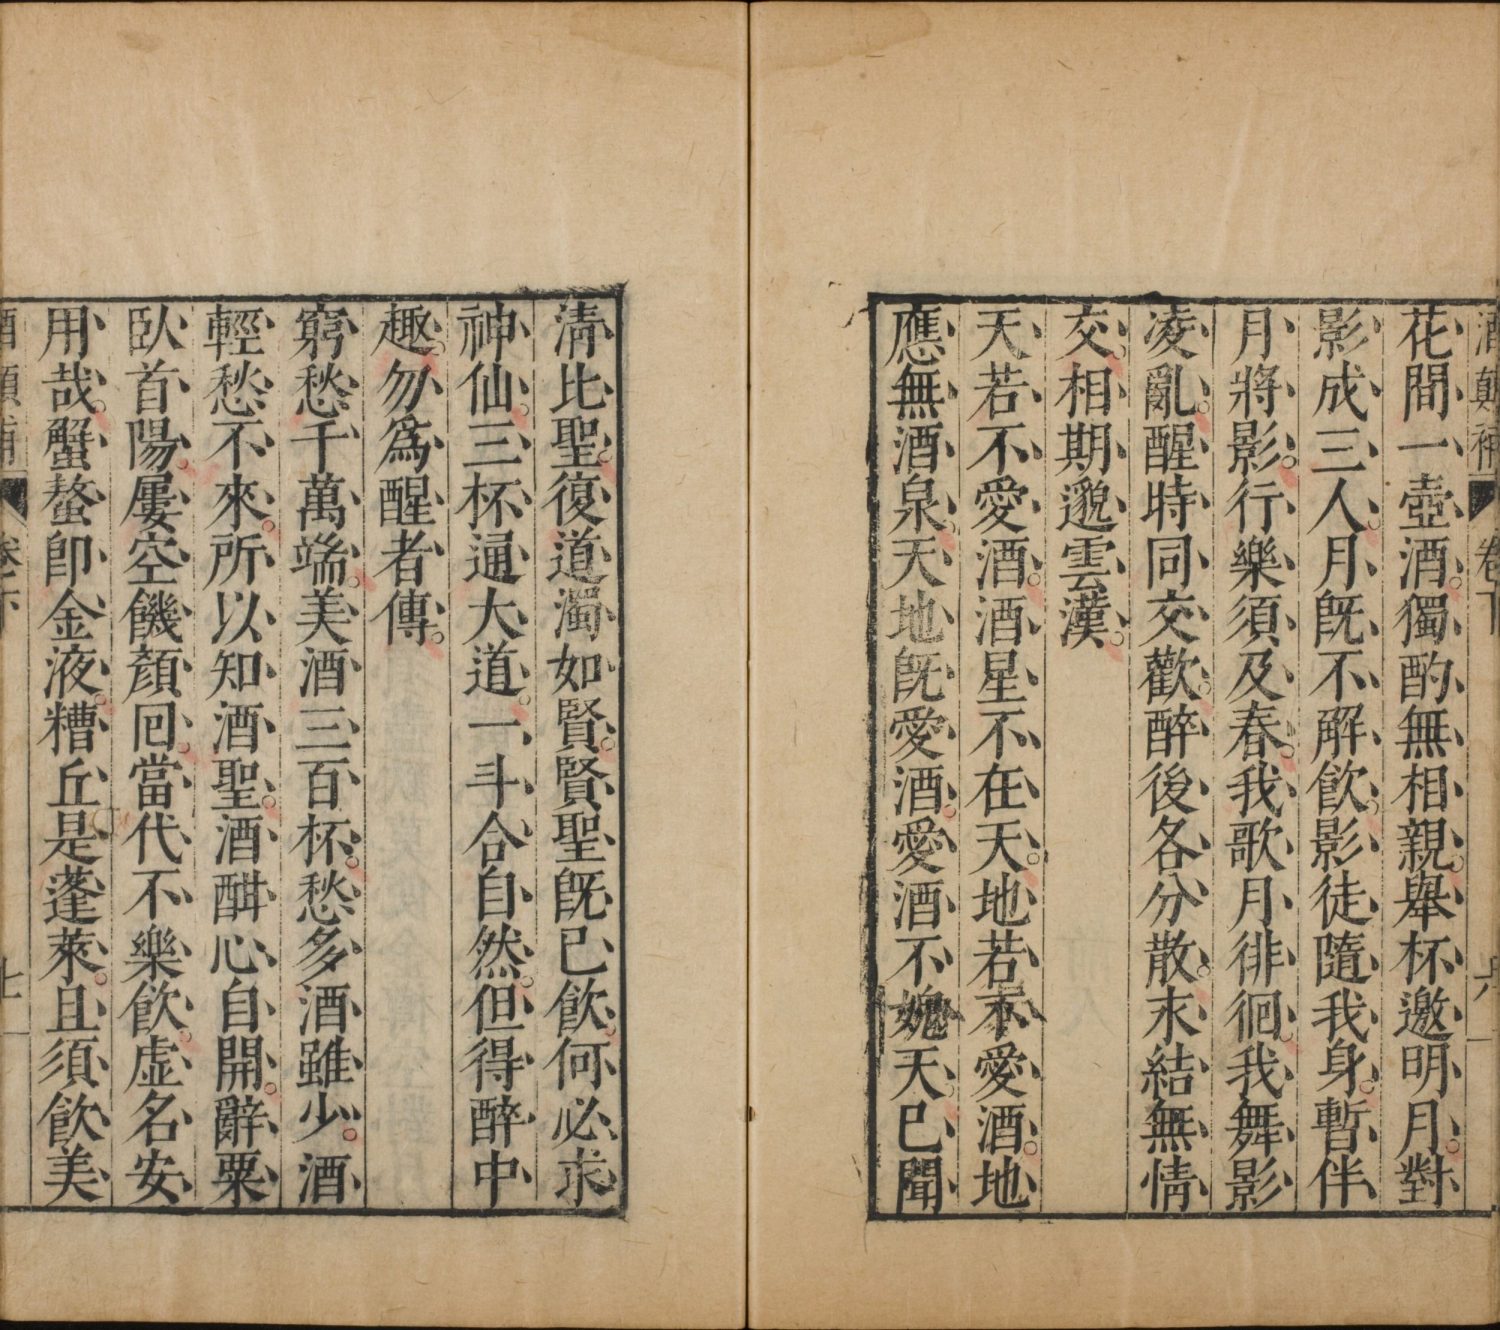 酒顛補 卷下 六
花間一壺酒獨酌無相親舉杯邀明月對
影成三人月旣不解飮影徒隨我身暫伴
月將影行樂須及春我歌月徘徊我舞影
凌亂醒時同交歡醉後各分散永結無情
交相期邈雲漢
天若不愛酒酒星不在天地若不愛酒地
應無酒泉天地旣愛酒愛酒不媿天已聞
淸比聖復道濁如賢賢聖旣已飮何必求
神仙三杯通大道一斗合自然但得醉中
趣勿爲醒者傳
窮愁千萬端美酒三百杯愁多酒雖少酒
輕愁不來所以知酒聖酒酣心自開辭粟
臥首陽屢空饑顏囘當代不樂飮虛名安
用哉蟹螯卽金液糟丘是蓬萊且須飮美
酒顛補 卷下 七